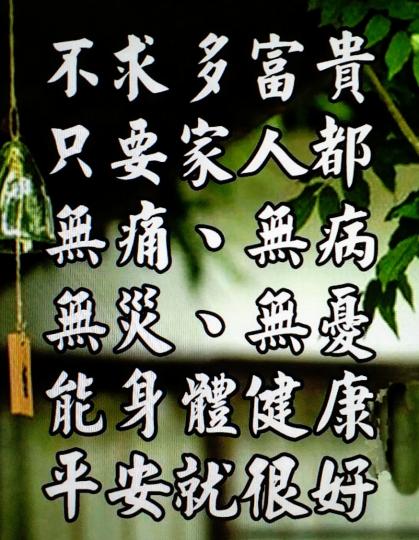 不求多富貴
只要家人都
無痛、無病
無災、無憂
能身體健康
平安就很好